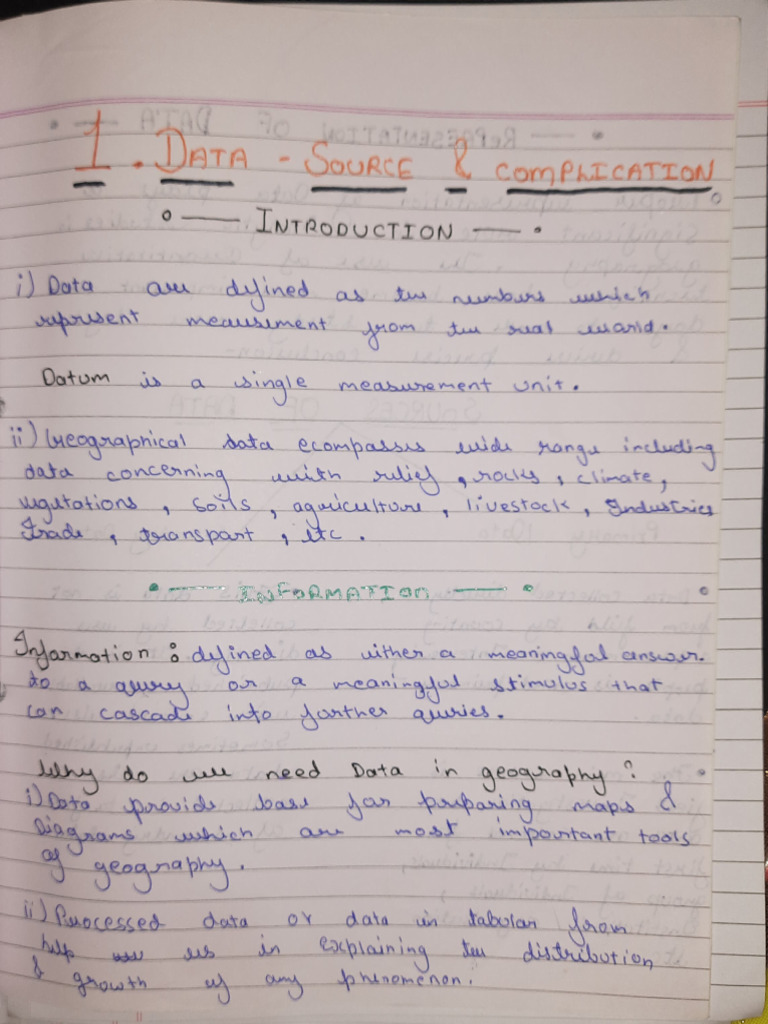 1. DATA - SOURCE & COMPLICATION
INTRODUCTION
i) Data are defined as the numbers which
represent measurement from the real world.
Datum is a single measurement unit.
ii) Geographical data ecompasses wide range including
data concerning with relief, rocks, climate,
vegutations, soils, agriculture, livestock, Industries
trade, transpart, etc.
INFORMATION
Information : defined as either a meaningful answer.
to a query or a meaningful stimulus that
can cascade into further queries.
Why do we need Data in geography?
i) Data provide base for preparing maps &
Diagrams which are most important tools
of geography.
ii) Processed data or data in tabular from
help us in explaining the distribution
& growth of any phenomenon.